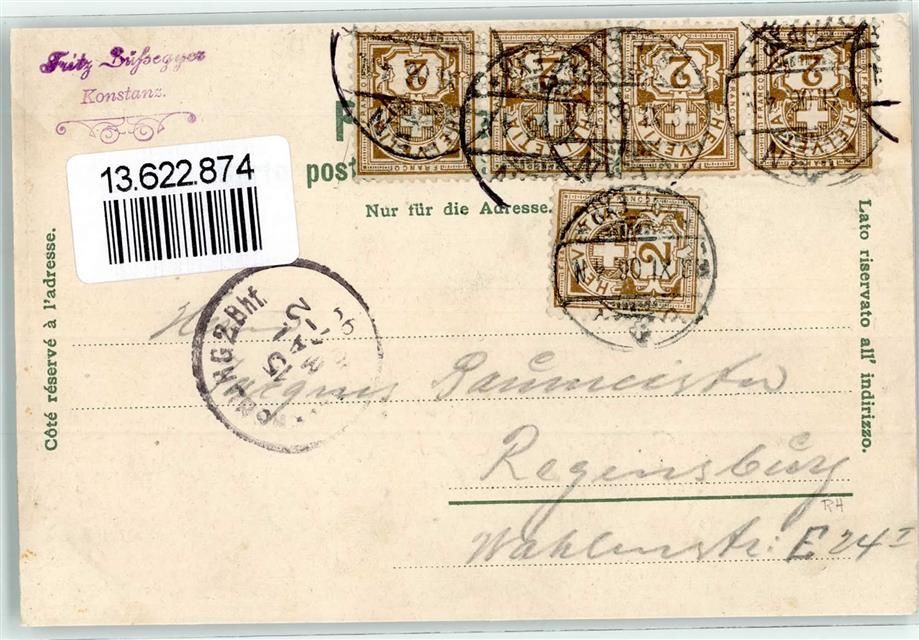 Fritz Büßegger
Konstanz.
13.622.874
post
Nur für die Adresse.
Côté réservé à l'adresse.
Lato riservato all' indirizzo.
2 2 2 2
FRANCO
HELVETIA
2
2.Bhf.
Baumeister
Regensburg
RH
Wahlenstr: E 24 I